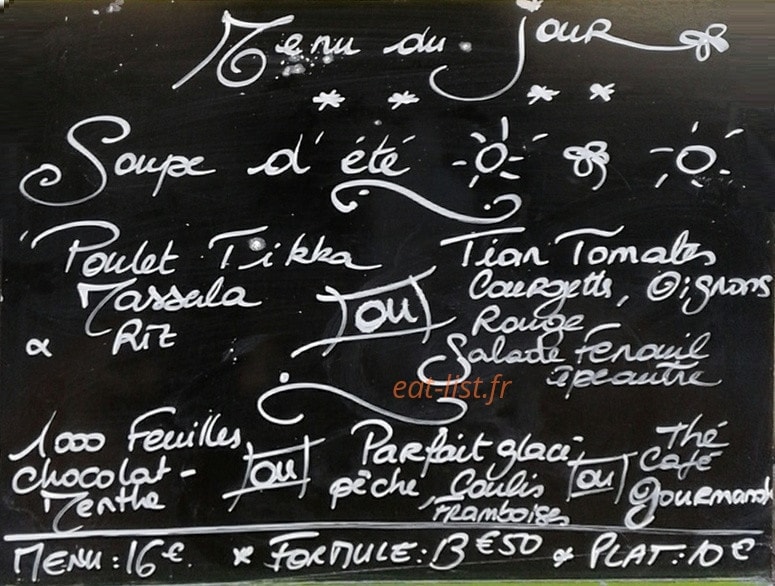 Menu du Jour
Soupe d'été
Poulet Tikka
Massala
& RIZ
OU
Tian Tomates
Courgettes, Oignons
Rouge
Salade Fenouil
épeautre
eat-list.fr
1000 Feuilles
chocolat-
Menthe
OU
Parfait glacé,
pêche, Coulis
Framboises
OU
Thé
Café
Gourmands
MENU: 16€ * FORMULE: 13€50 * PLAT: 10€